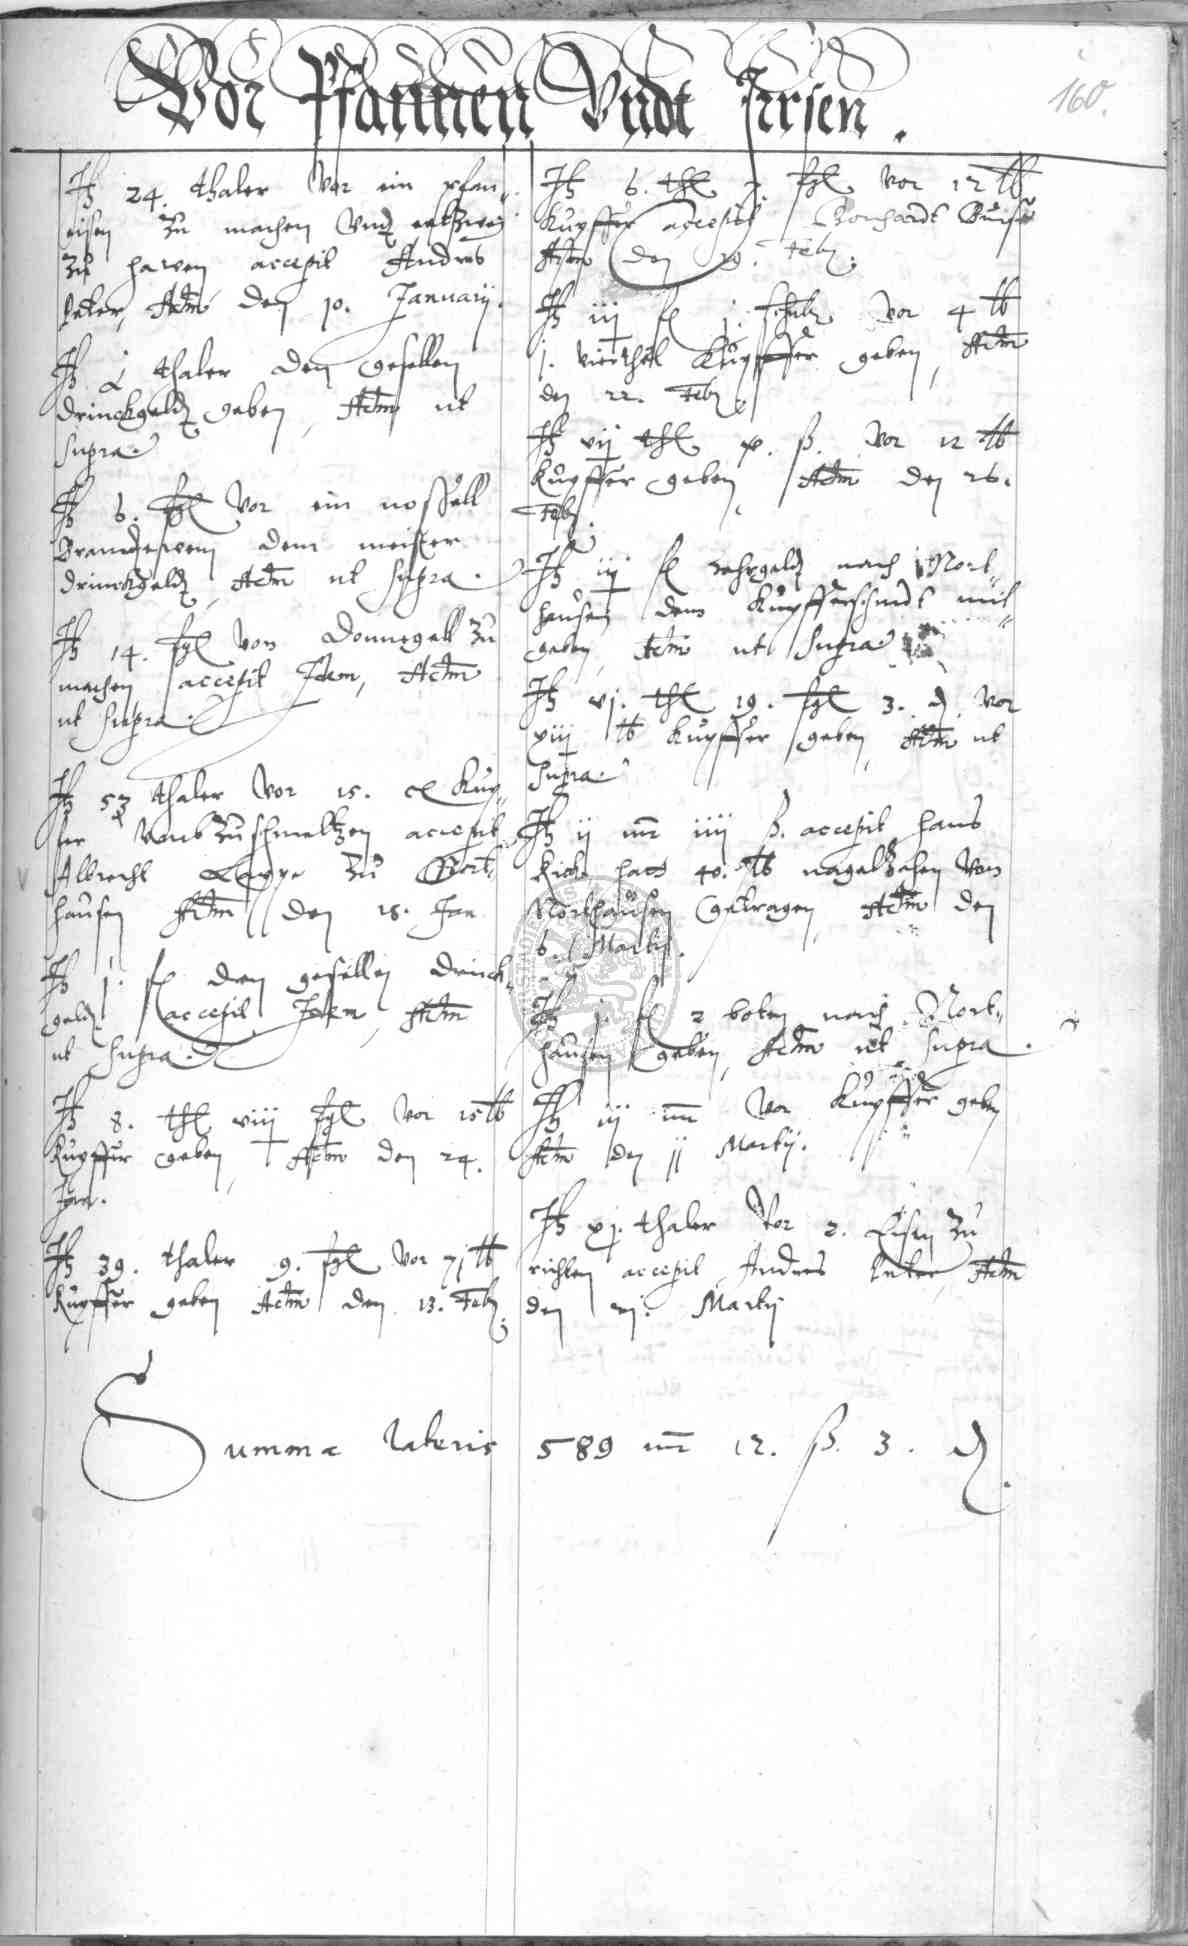 Vor Pfannen Vndt
160.
It 24. thaler Vor ein pfan„
eisen zu machen Vnd entzwei
zu hawen accepit Andres
Actm den 10. Januarij.
It thaler den gesellen
drinckgeldt geben, Actm ut
supra.
It 6. sgl Vor ein nossell
Brandewein dem meister
drinckgeldt, Actm ut supra.
It 14. sgl Von zu
machen accepit Idem, Actm
ut supra.
It 53 thaler Vor 15. Kup„
fer Vmb zu schmeltzen accepit
Albrecht zu Nort„
hausen Actm den 18. Jan
It j. fl den gesellen drinck„
geldt accepit Idem, Actm
ut supra.
It 8. thl viij sgl Vor 15 lb
Kupffer geben, Actm den 24.
Jan.
It 39. thaler 9. sgl Vor 71 lb
Kupffer geben Actm den 13. Feb
It 6. thl sgl Vor 12 lb
Kupffer accepit
Actm den 19. Feb.
It iij fl j. Vor 4 lb
j. viertheil Kupffer geben, Actm
den 22. Feb.
It vij thl ß. Vor 12 lb
Kupffer geben, Actm den 26.
Feb.
It iij fl zehrgeldt nach Nort„
hausen dem Kupfferschmidt mit„
geben, Actm ut supra
It vj. thl 19. sgl 3. d. Vor
xiij lb Kupffer geben, Actm ut
supra.
It ij mr iiij ß. accepit Hans
hatt 40. lb von
Northausen getragen, Actm den
6. Martij.
It j. fl 2 boten nach Nort„
hausen geben, Actm ut supra.
It iij mr Vor Kupffer geben
Actm den 11 Martij.
It xj. thaler Vor 2. Eisen zu
richten accepit Andres Actm
den Martij
Summa lateris 589 mr 12. ß. 3. d.